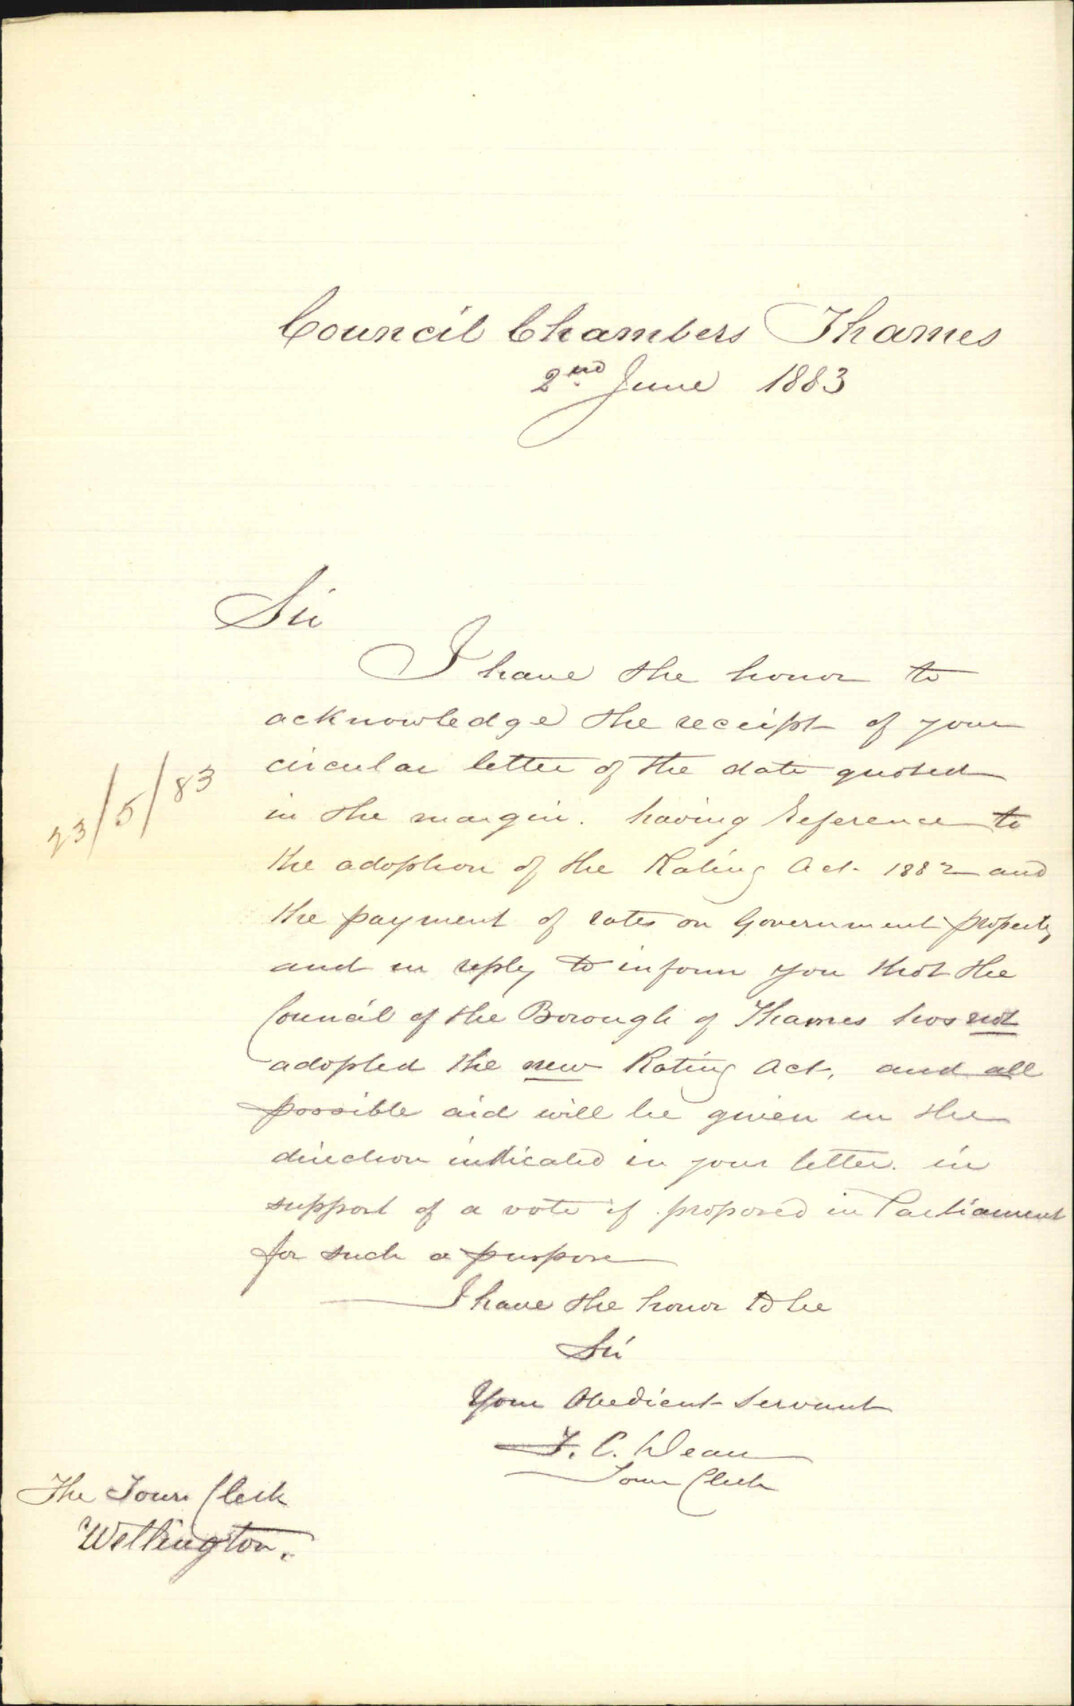 Council Chambers Thames
2nd June 1883
Sir
I have the honor to
acknowledge the receipt of your
circular letter of the date quoted
23/5/83
in the margin. having reference to
the adoption of the Rating Act. 1882 and
the payment of rates on Government property,
and in reply to inform you that the
Council of the Borough of Thames has not
adopted the new Rating Act, and all
possible aid will be given in the
direction indicated in your letter. in
support of a vote if proposed in Parliament
for such a purpose
I have the honor to be
Sir
Your Obedient Servant
F. C. Dean
Town Clerk
The Town Clerk
Wellington.